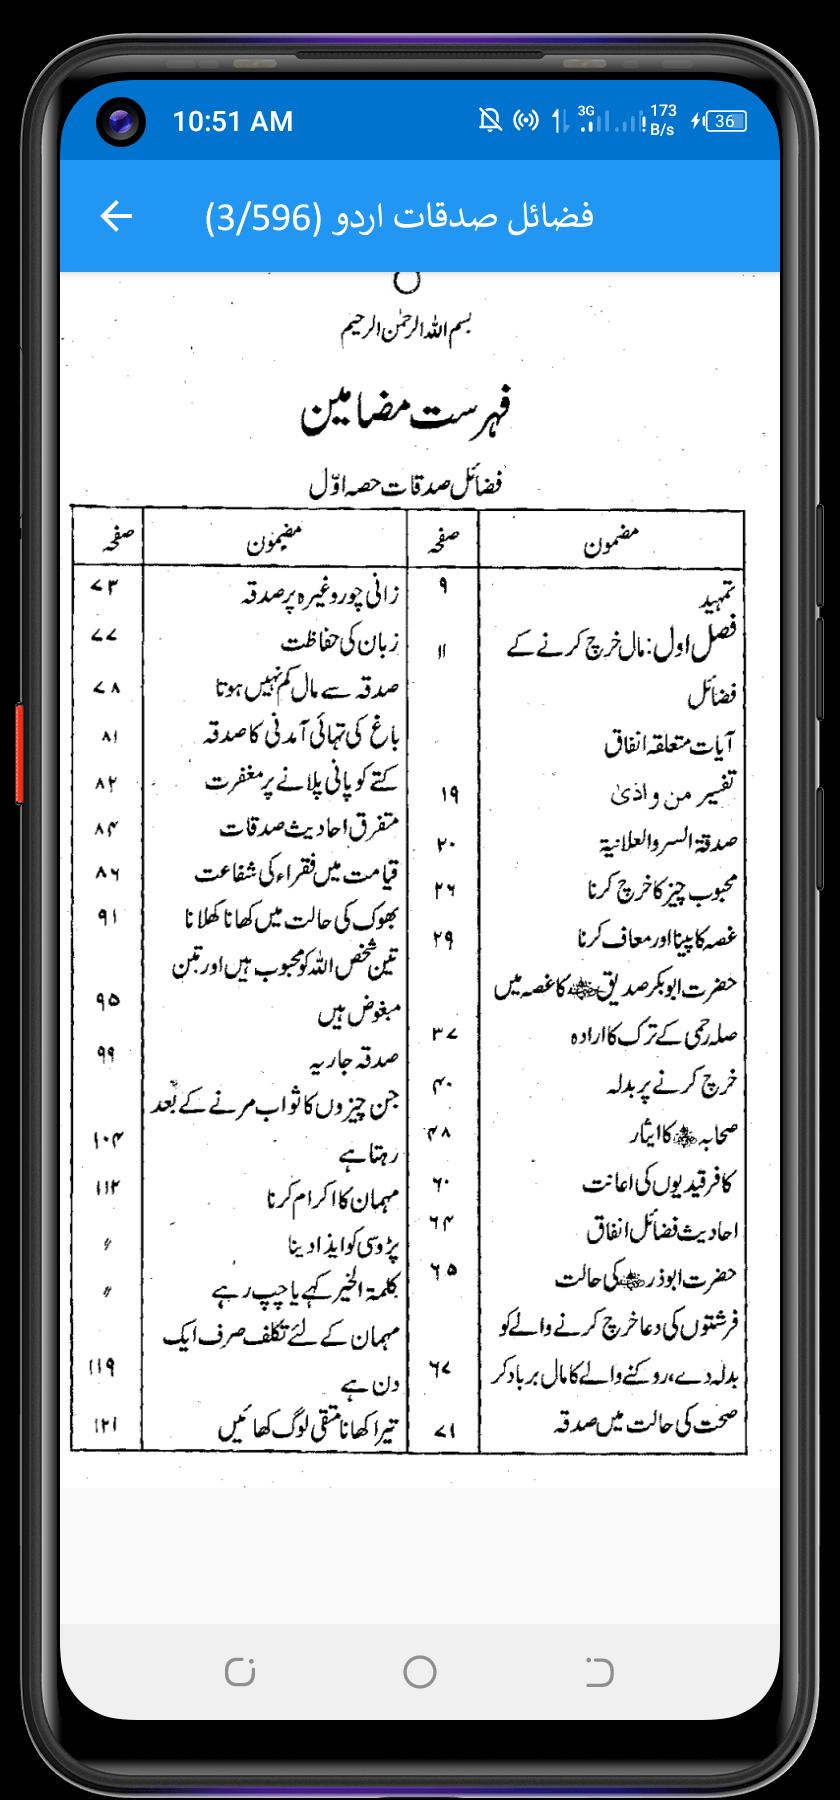 10:51 AM
3G
173
B/s
36
فضائل صدقات اردو (3/596)
بسم اللہ الرحمٰن الرحیم
فہرست مضامین
فضائل صدقات حصہ اوّل
مضمون صفحہ
تمہید ۹
فصل اول: مال خرچ کرنے کے ۱۱
فضائل
آیات متعلقہ انفاق
تفسیر من و اذیٰ ۱۹
صدقۃ السر والعلانیۃ ۲۰
محبوب چیز کا خرچ کرنا ۲۶
غصہ کا پینا اور معاف کرنا ۲۹
حضرت ابوبکر صدیق رضی اللہ عنہ کا غصہ میں
صلہ رحمی کے ترک کا ارادہ ۳۷
خرچ کرنے پر بدلہ ۴۰
صحابہ رضی اللہ عنہم کا ایثار ۴۸
کافر قیدیوں کی اعانت ۶۰
احادیث فضائل انفاق ۶۴
حضرت ابوذر رضی اللہ عنہ کی حالت ۶۵
فرشتوں کی دعا خرچ کرنے والے کو
بدلہ دے، روکنے والے کا مال برباد کر ۶۷
صحت کی حالت میں صدقہ ۷۱
مضمون صفحہ
زانی چور وغیرہ پر صدقہ ۷۳
زبان کی حفاظت ۷۷
صدقہ سے مال کم نہیں ہوتا ۷۸
باغ کی تہائی آمدنی کا صدقہ ۸۱
کتے کو پانی پلانے پر مغفرت ۸۲
متفرق احادیث صدقات ۸۴
قیامت میں فقراء کی شفاعت ۸۶
بھوک کی حالت میں کھانا کھلانا ۹۱
تین شخص اللہ کو محبوب ہیں اور تین
مبغوض ہیں ۹۵
صدقہ جاریہ ۹۹
جن چیزوں کا ثواب مرنے کے بعد
رہتا ہے ۱۰۴
مہمان کا اکرام کرنا ۱۱۲
پڑوسی کو ایذا دینا 〃
کلمۃ الخیر کہے یا چپ رہے 〃
مہمان کے لئے تکلف صرف ایک
دن ہے ۱۱۹
تیرا کھانا متقی لوگ کھائیں ۱۲۱